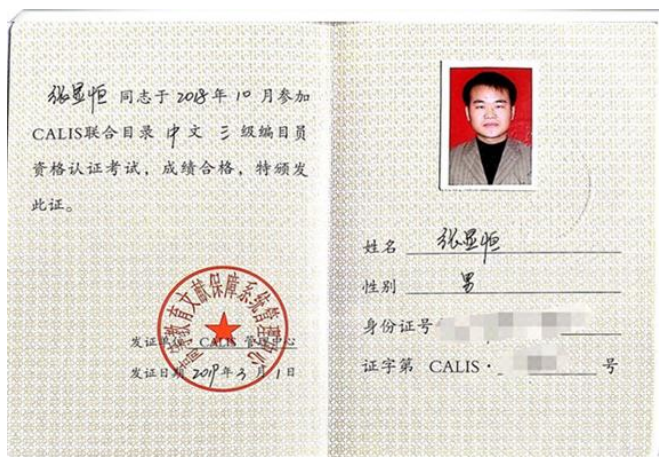 张显恒 同志于 2018 年 10 月参加
CALIS联合目录 中文 三 级编目员
资格认证考试，成绩合格，特颁发
此证。
高等教育文献保障系统管理中心
发证单位 CALIS 管理中心
发证日期 2019 年 3 月 1 日
姓名 张显恒
性别 男
身份证号
证字第 CALIS· 号